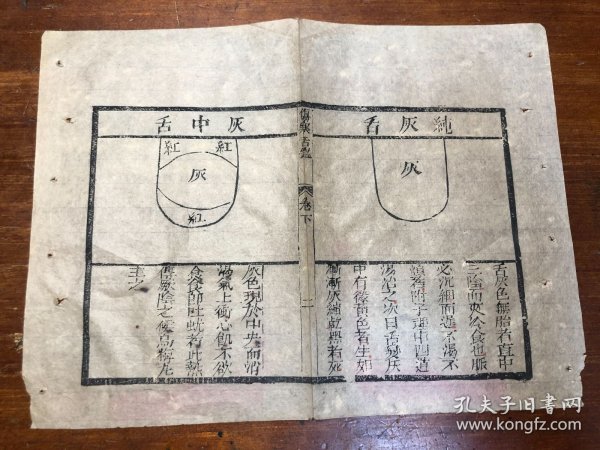 純灰舌
灰
舌灰色無胎者直中
三陰而夾冷食也脈
必沉細而遲不渴不
煩者附子理中四逆
湯治之次日舌變灰
中有微黃色者生如
漸漸灰縮或黑者死
傷寒舌鑑
卷下
二
灰中舌
紅
紅
灰
紅
灰色現於中央而消
渴氣上衝心飢不欲
食食即吐蚘者此熱
傳厥陰之候烏梅丸
主之
孔夫子旧书网
www.kongfz.com